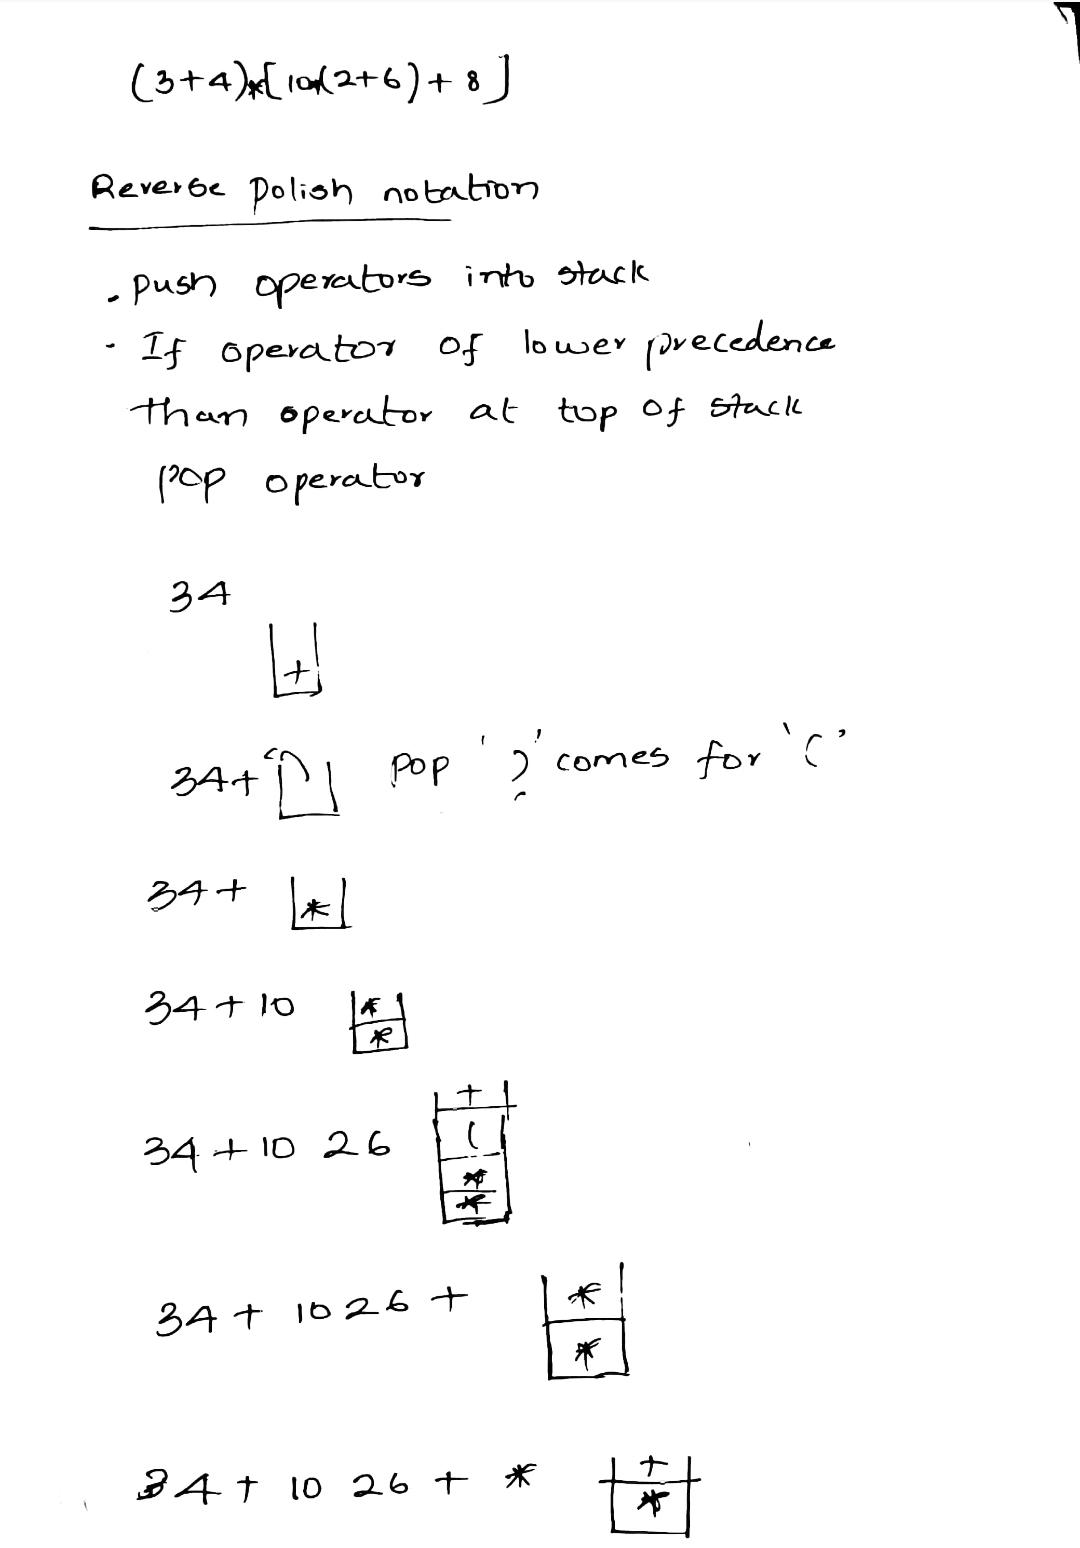 (3+4)*[10*(2+6)+8]
Reverse Polish notation
. Push operators into stack
. If operator of lower precedence
than operator at top of stack
pop operator
34
+
34+ "(" pop ')' comes for '('
34+ *
34+10 *
*
+
34+10 26 (
*
*
34+ 10 26 + *
*
34+ 10 26 + * +
*